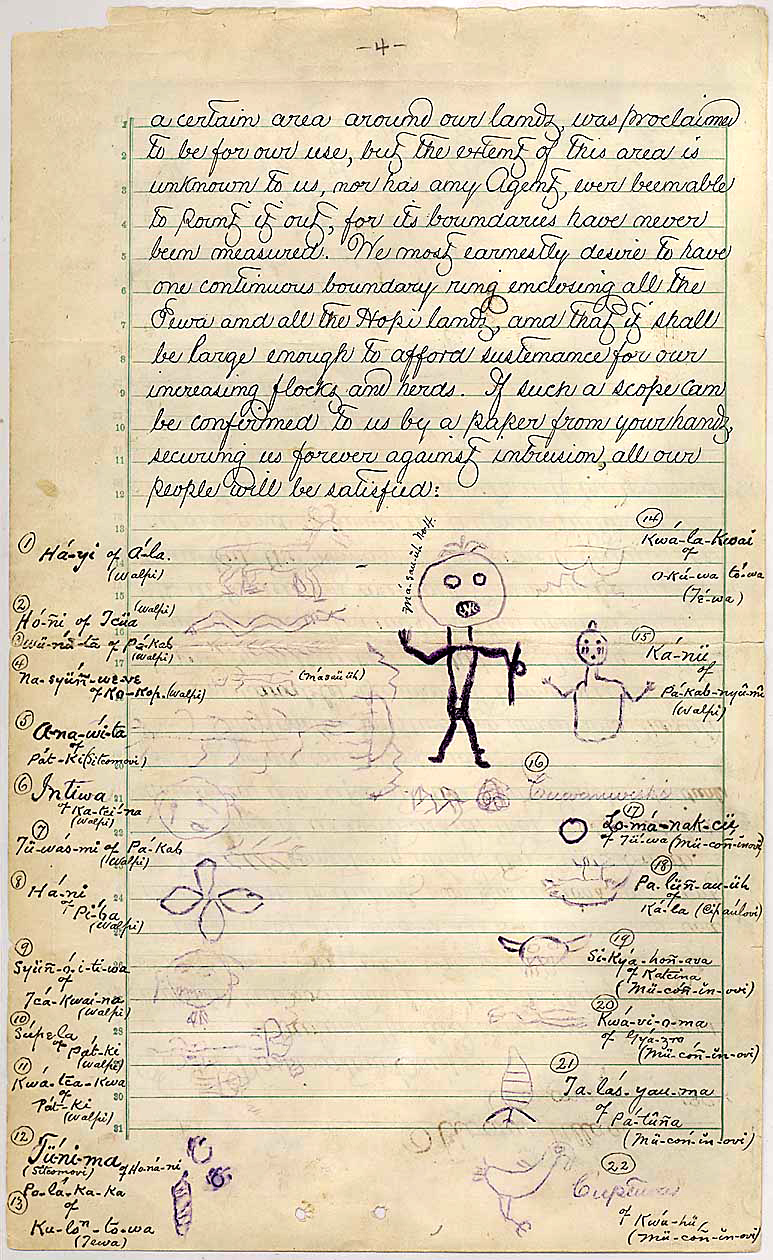 -4-
a certain area around our lands, was proclaimed
to be for our use, but the extent of this area is
unknown to us, nor has any Agent, ever been able
to point it out, for its boundaries have never
been measured. We most earnestly desire to have
one continuous boundary ring enclosing all the
Tewa and all the Hopi lands, and that it shall
be large enough to afford sustenance for our
increasing flocks and herds. If such a scope can
be confirmed to us by a paper from your hands,
securing us forever against intrusion, all our
people will be satisfied:
1 Há-yi of Á-la.
(Walpi)
2 Hó-ñi of Tcüa (Walpi)
3 Wü-nü-ta of Pá-kab
(Walpi)
4 Na-syüñ-we-ve
of Ko-kop. (Walpi)
(Másauüh)
5 A-na-wi-ta
of
Pát-Ki (Sitcomovi)
6 Intiwa
of Ka-tci-na
(Walpi)
7
Tü-wás-mi of Pá-kab
(Walpi)
8
Há-ni
of Pí-ba
(Walpi)
9
Syüñ-ó-i-ti-wa
of
Tcá-kwai-na
(Walpi)
10
Súpe-la
of Pát-ki
(Walpi)
11
Kwá-tca-kwa
of
Pát-ki
(Walpi)
12
Tü-ni-ma
(Sitcomovi) of Ho-ná-ni
13 Po-lá-ka-ka
of
Ku-loⁿ-to-wa
(Tewa)
14
Kwá-la-kwai
of
O-kú-wa tó-wa
(Té-wa)
15
Ká-nü
of
Pá-kab-nyû-mû
(Walpi)
16
17
Lo-má-nak-cü
of Tü-wa (Mü-coñ-inovi)
18
Pa-lüñ-au-üh
of
Ká-la (Cipaúlovi)
19
Si-kyá-hoñ-ava
of Katcina
(Mü-cóñ-ĭn-ovi)
20
Kwá-vi-o-ma
of Gyá-zro
(Mü-cóñ-ĭn-ovi)
21
Ta-lás-yau-ma
of
Pá-tûña
(Mü-coñ-ĭn-ovi)
22
of Kwá-hü
(Mü-cóñ-ĭn-ovi)